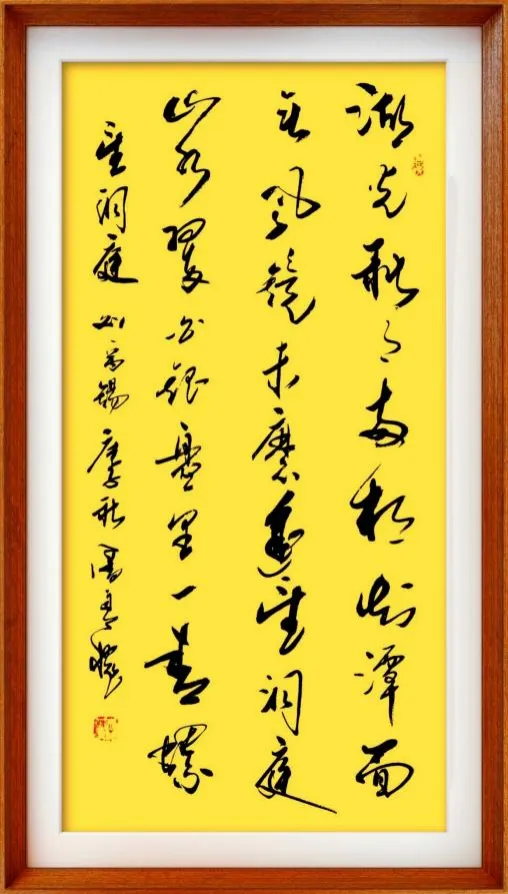 湖光秋月两相和潭面
无风镜未磨遥望洞庭
山水翠白银盘里一青螺
望洞庭 刘禹锡 庚子秋